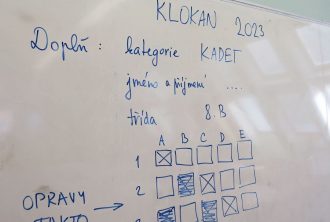 KLOKAN 2023
Doplň: kategorie KADET
jméno a příjmení ....
třída 8.B
A B C D E
1
2
OPRAVY
TAKTO
3